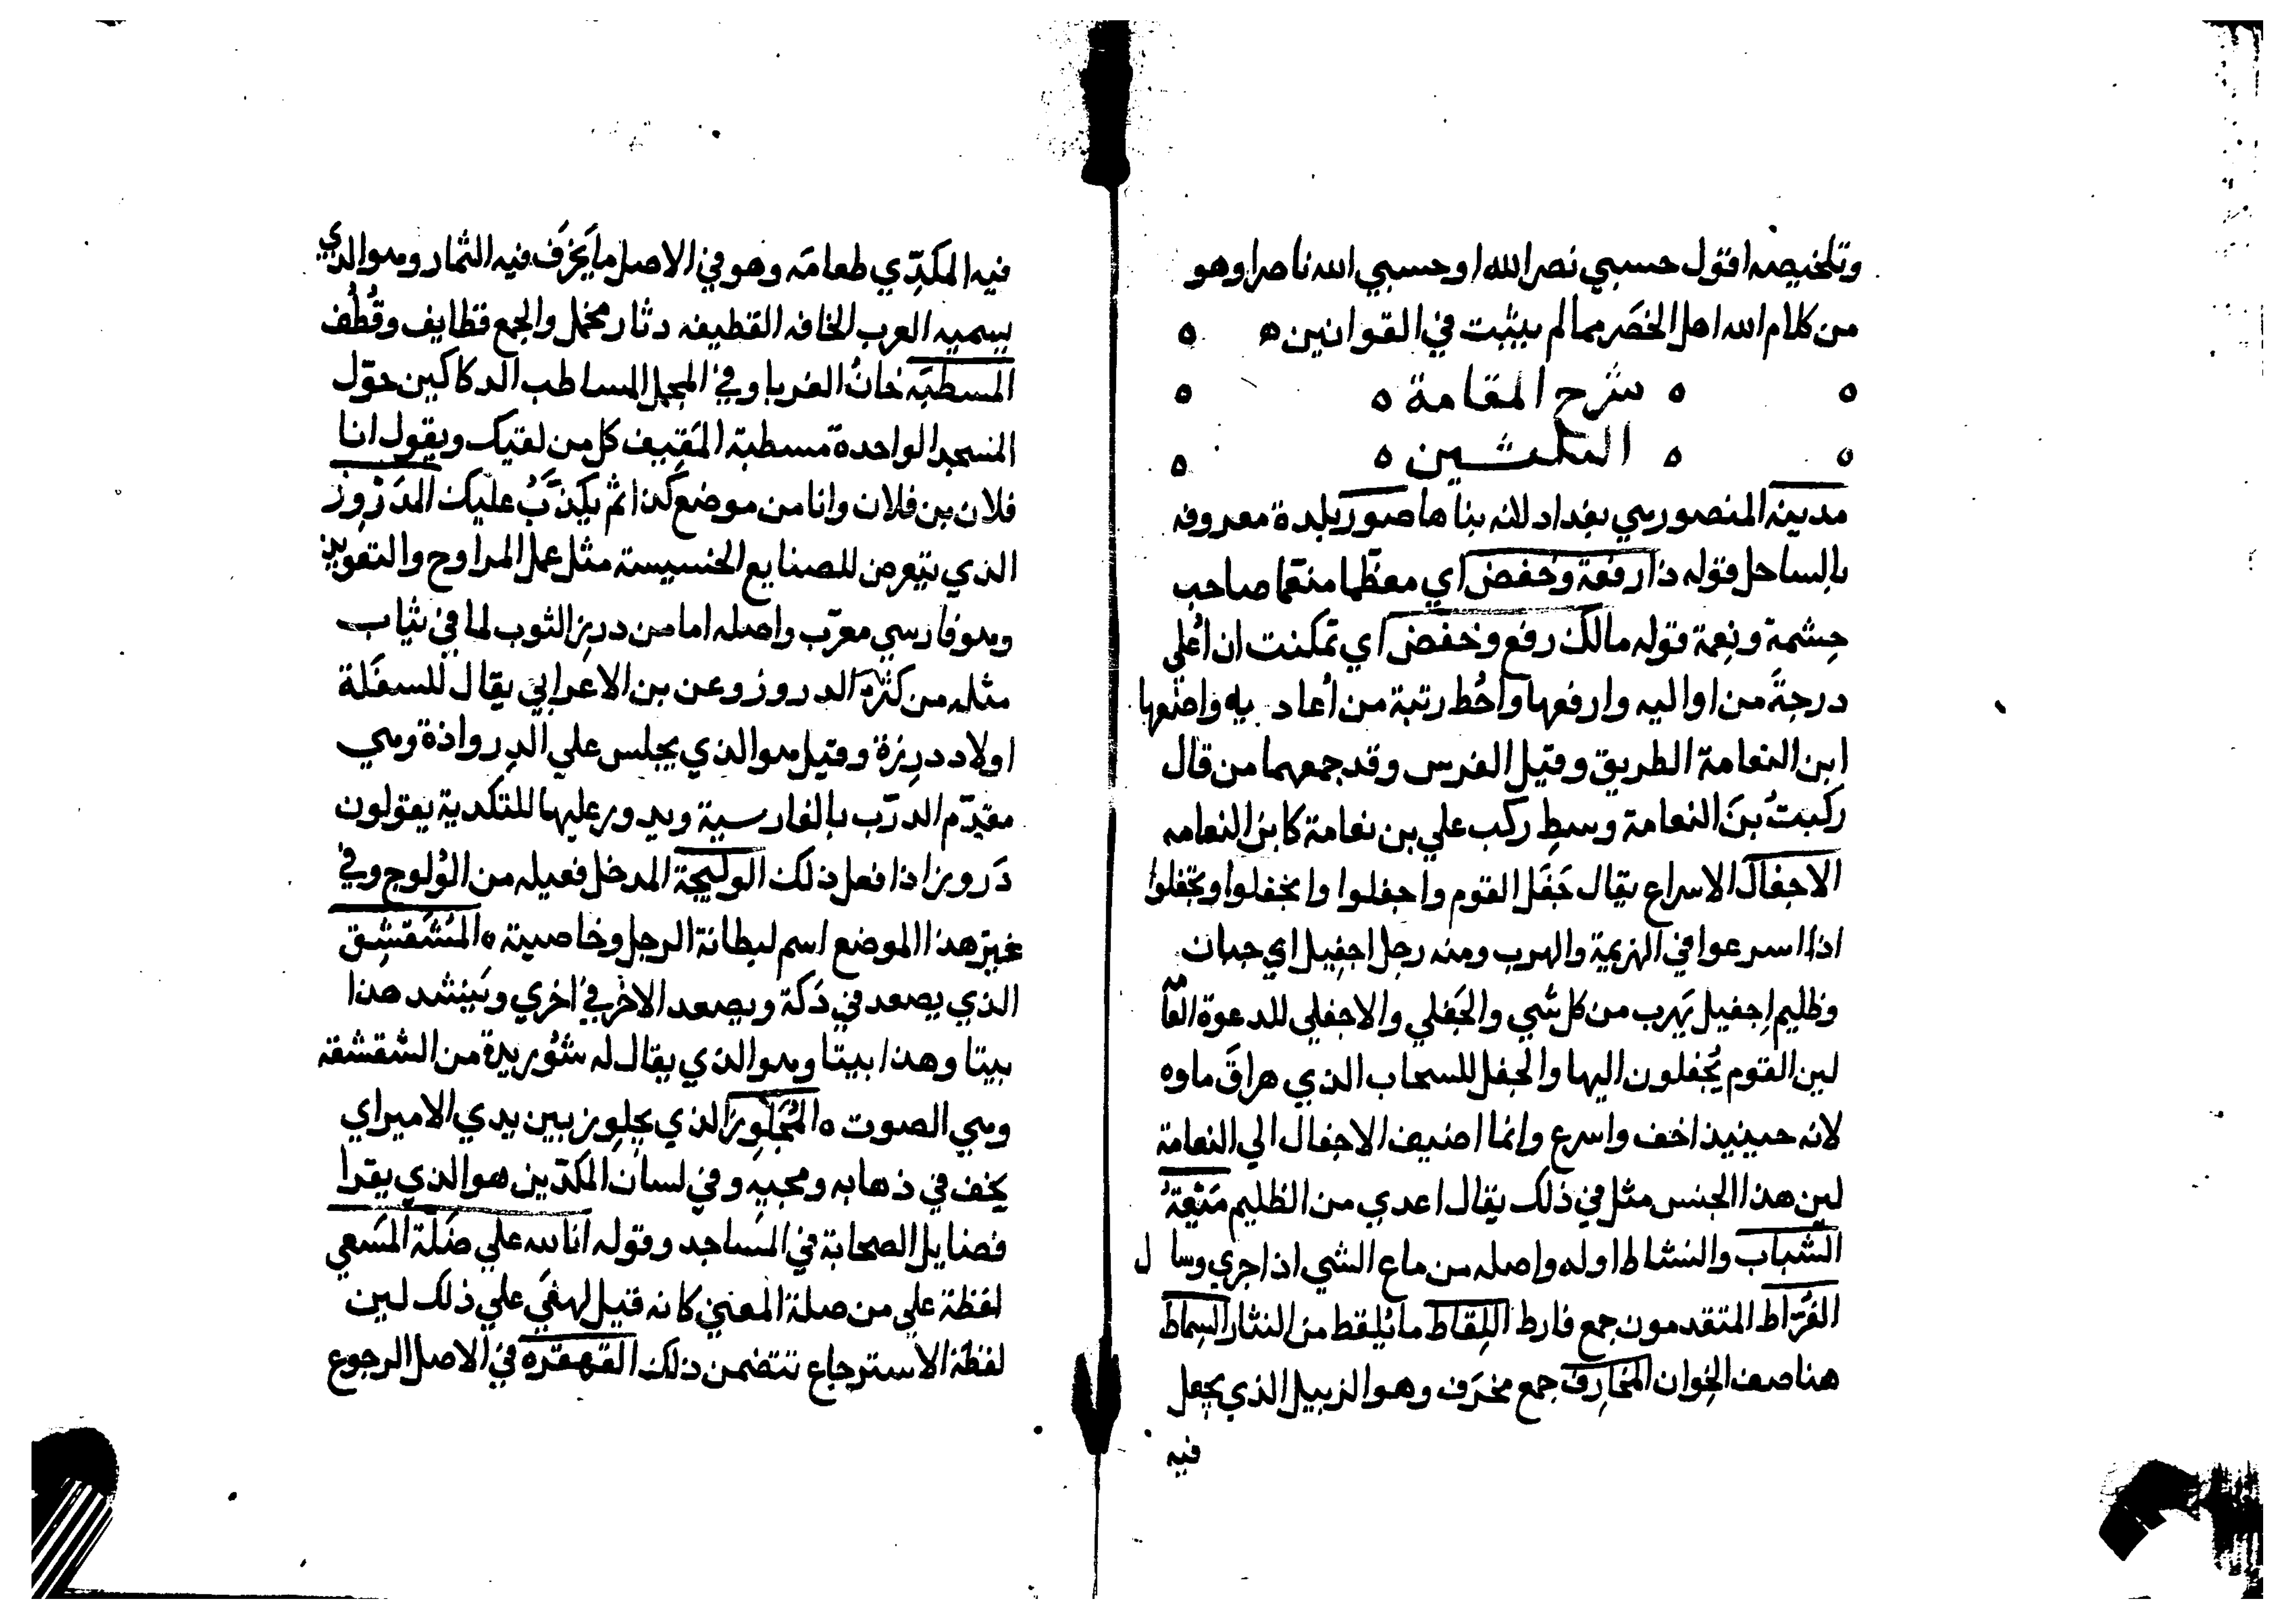 وتلخيصه اقول حسبي نصر الله او حسبي الله ناصرا وهو
من كلام الله اهل الحضر مما لم يثبت في القوانين ه ه
ه ه شرح المقامة ه ه
ه ه الثلثين ه ه
مدينة المنصور هي بغداد لانه بناها صور بلدة معروفه
بالساحل قوله ذا رفعة وخفض اي معظما منعما صاحب
حشمة ونعمة قوله مالك رفع وخفض اي تمكنت ان اعلي
درجة من اواليه وارفعها واحط رتبة من اعاديه واضعها
ابن النعامة الطريق وقيل الفرس وقد جمعهما من قال
ركبت بن النعامة وسط ركب علي بن نعامة كابن النعامه
الاجفال الاسراع يقال جفل القوم واجفلوا وانجفلوا وتجفلوا
اذا اسرعوا في الهزيمة والهرب ومنه رجل اجفيل اي جبان
وظليم اجفيل يهرب من كل شي والجفلي والاجفلي للدعوة العامة
لين القوم يجفلون اليها والجفل للسحاب الذي هراق ماوه
لانه حينيذ اخف واسرع وانما اضيف الاجفال الي النعامة
لين هذا الجنس مثل في ذلك يقال اعدي من الظليم ميعة
الشباب والنشاط اوله واصله من ماع الشي اذا جري وسال
الفراط المتقدمون جمع فارط اللقاط ما يلقط من النثار السماط
هنا صف الخوان المخارف جمع مخرف وهو الزبيل الذي يجعل
فيه
فيه المكدي طعامه وهو في الاصل ما يخرف فيه الثمار وهو الذي
يسميه العرب الخافه القطيفه دثار مخمل والجمع قطايف وقطف
المسطبة خان الغربا وفي المجمل المساطب الدكاكين حول
المسجد الواحدة مسطبة المقيف كل من لقيك ويقول انا
فلان بن فلان وانا من موضع كذا ثم يكذب عليك المدروز
الذي يتعرض للصنايع الخسيسة مثل عمل المراوح والتعويذ
وهو فارسي معرب واصله اما من درز الثوب لما في ثياب
مثله من كثرة الدروز وعن بن الاعرابي يقال للسفلة
اولاد درزة وقيل هو الذي يجلس علي الدرواذة وهي
مقدم الدرب بالفارسية ويدور عليها للتكدية يقولون
دروز اذا فعل ذلك الوليجة المدخل فعيله من الولوج وفي
غير هذا الموضع اسم لبطانة الرجل وخاصيته ه المشقشق
الذي يصعد في دكة ويصعد الاخر في اخري وينشد هذا
بيتا وهذا بيتا وهو الذي يقال له شوريدة من الشقشقه
وهي الصوت ه المجلوز الذي يجلوز بين يدي الامير اي
يخف في ذهابه ومجيه وفي لسان المكدين هو الذي يقرا
فضايل الصحابة في المساجد وقوله انا لله علي ضلة المسعي
لفظة علي من صلة المعني كانه قيل لهفي علي ذلك لين
لفظة الاسترجاع تتضمن ذلك القهقره في الاصل الرجوع